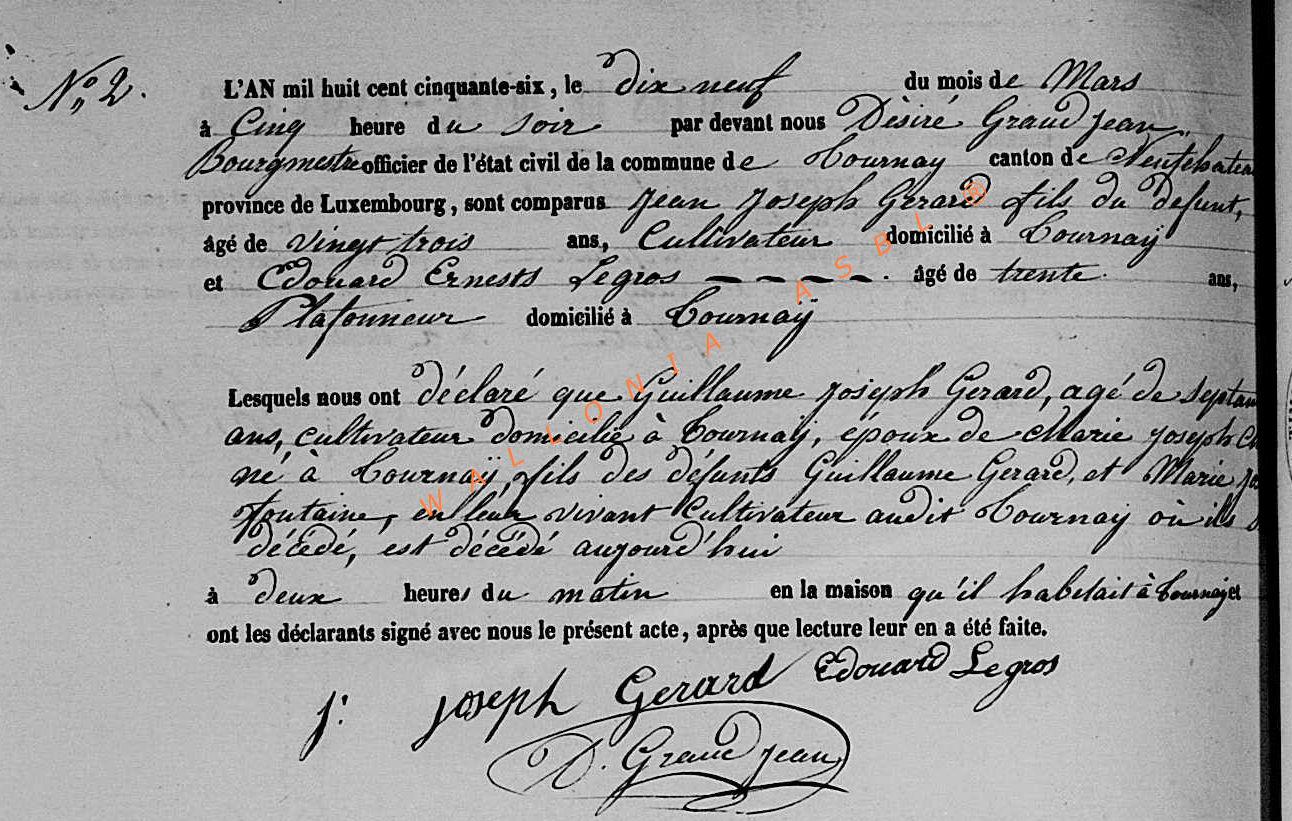 N° 2.
L'AN mil huit cent cinquante-six, le dix neuf du mois de Mars
à Cinq heure du soir par devant nous Dèsiré Grand jean
Bourgmestre officier de l'état civil de la commune de Tournay canton de Neufchateau
province de Luxembourg, sont comparus Jean Joseph Gerard fils du defunt,
âgé de vingt trois ans, Cultivateur domicilié à Tournaÿ
et Edouard Ernests Legros — — — —. âgé de trente ans,
Plafonneur domicilié à Tournaÿ
Lesquels nous ont déclaré que Guillaume Joseph Gerard, agé de septan
ans, cultivateur domicilié à Tournaÿ, époux de Marie Joseph
né à Tournaÿ, fils des défunts Guillaume Gerard, et Marie Jos
fontaine, en leur vivant Cultivateur audit Tournaÿ où ils
décedé, est décédé aujourd'hui
à deux heures du matin en la maison qu'il habitait à Tournaÿ et
ont les déclarants signé avec nous le présent acte, après que lecture leur en a été faite.
j: joseph Gerard Edouard Legros
D. Grand jean
WALLONIA ASBL ®